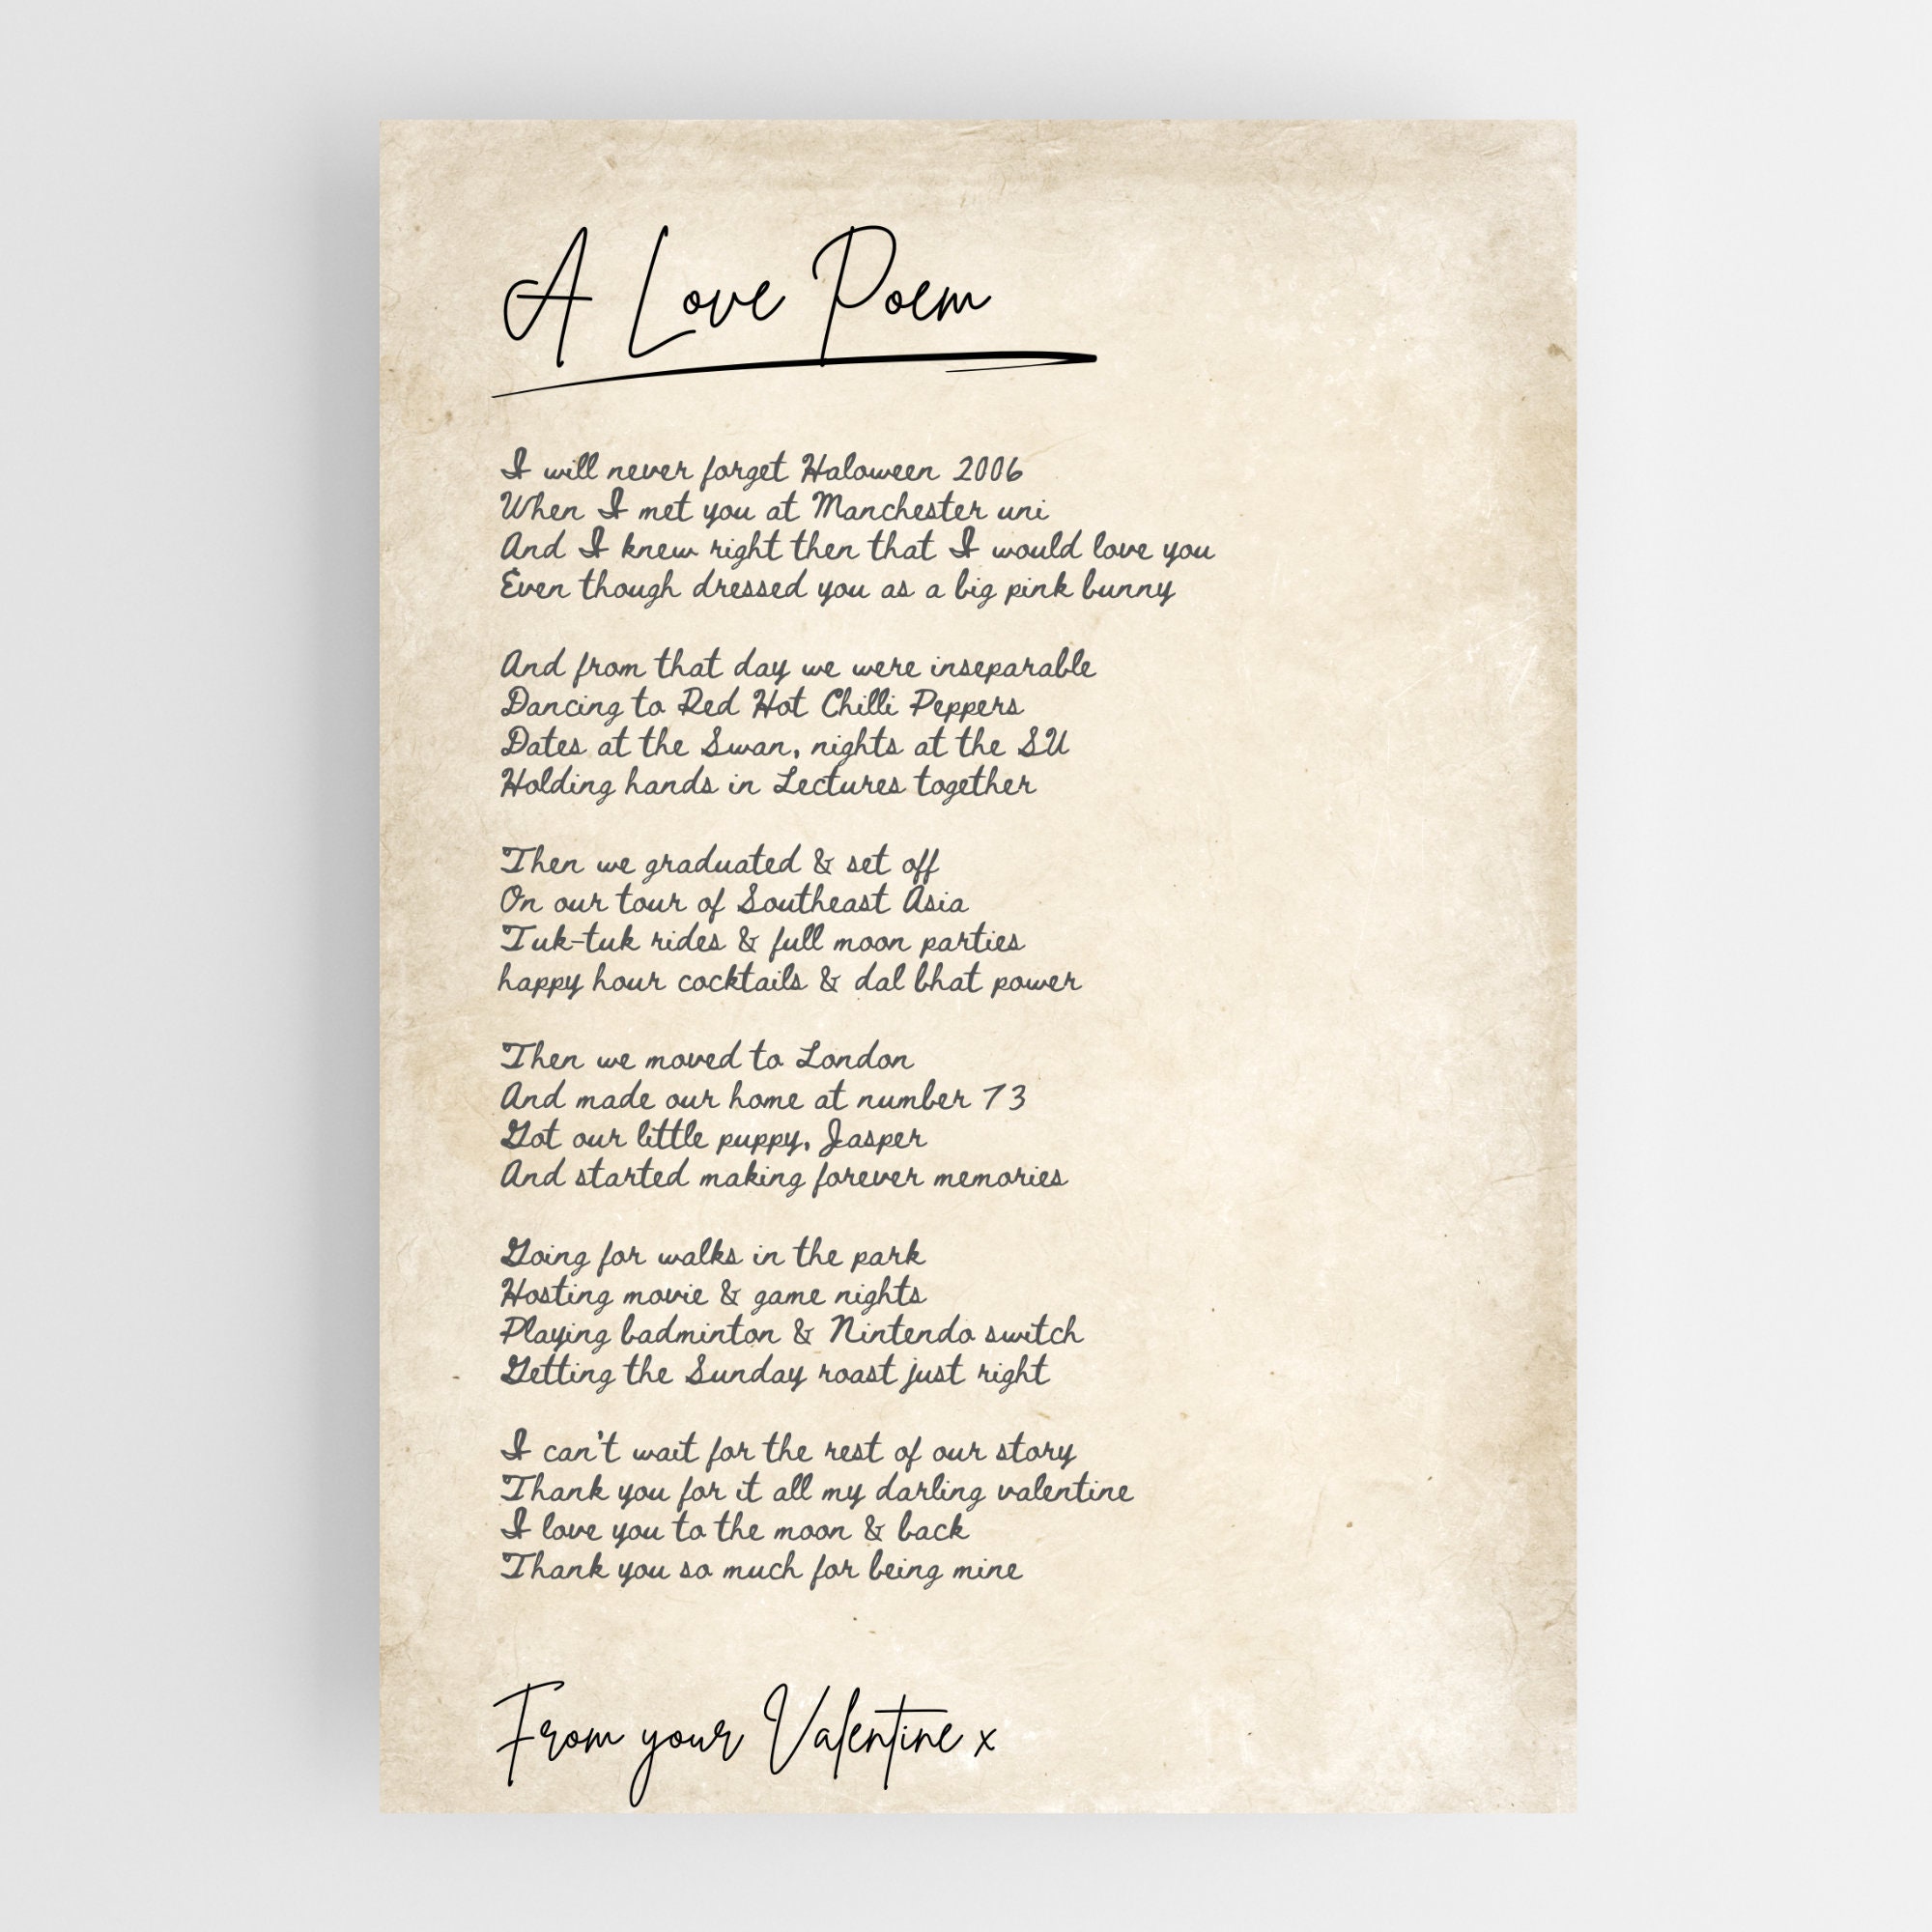 A Love Poem
I will never forget Haloween 2006
When I met you at Manchester uni
And I knew right then that I would love you
Even though dressed you as a big pink bunny
And from that day we were inseparable
Dancing to Red Hot Chilli Peppers
Dates at the Swan, nights at the SU
Holding hands in Lectures together
Then we graduated & set off
On our tour of Southeast Asia
Tuk-tuk rides & full moon parties
happy hour cocktails & dal bhat power
Then we moved to London
And made our home at number 73
Got our little puppy, Jasper
And started making forever memories
Going for walks in the park
Hosting movie & game nights
Playing badminton & Nintendo switch
Getting the Sunday roast just right
I can't wait for the rest of our story
Thank you for it all my darling valentine
I love you to the moon & back
Thank you so much for being mine
From your Valentine x